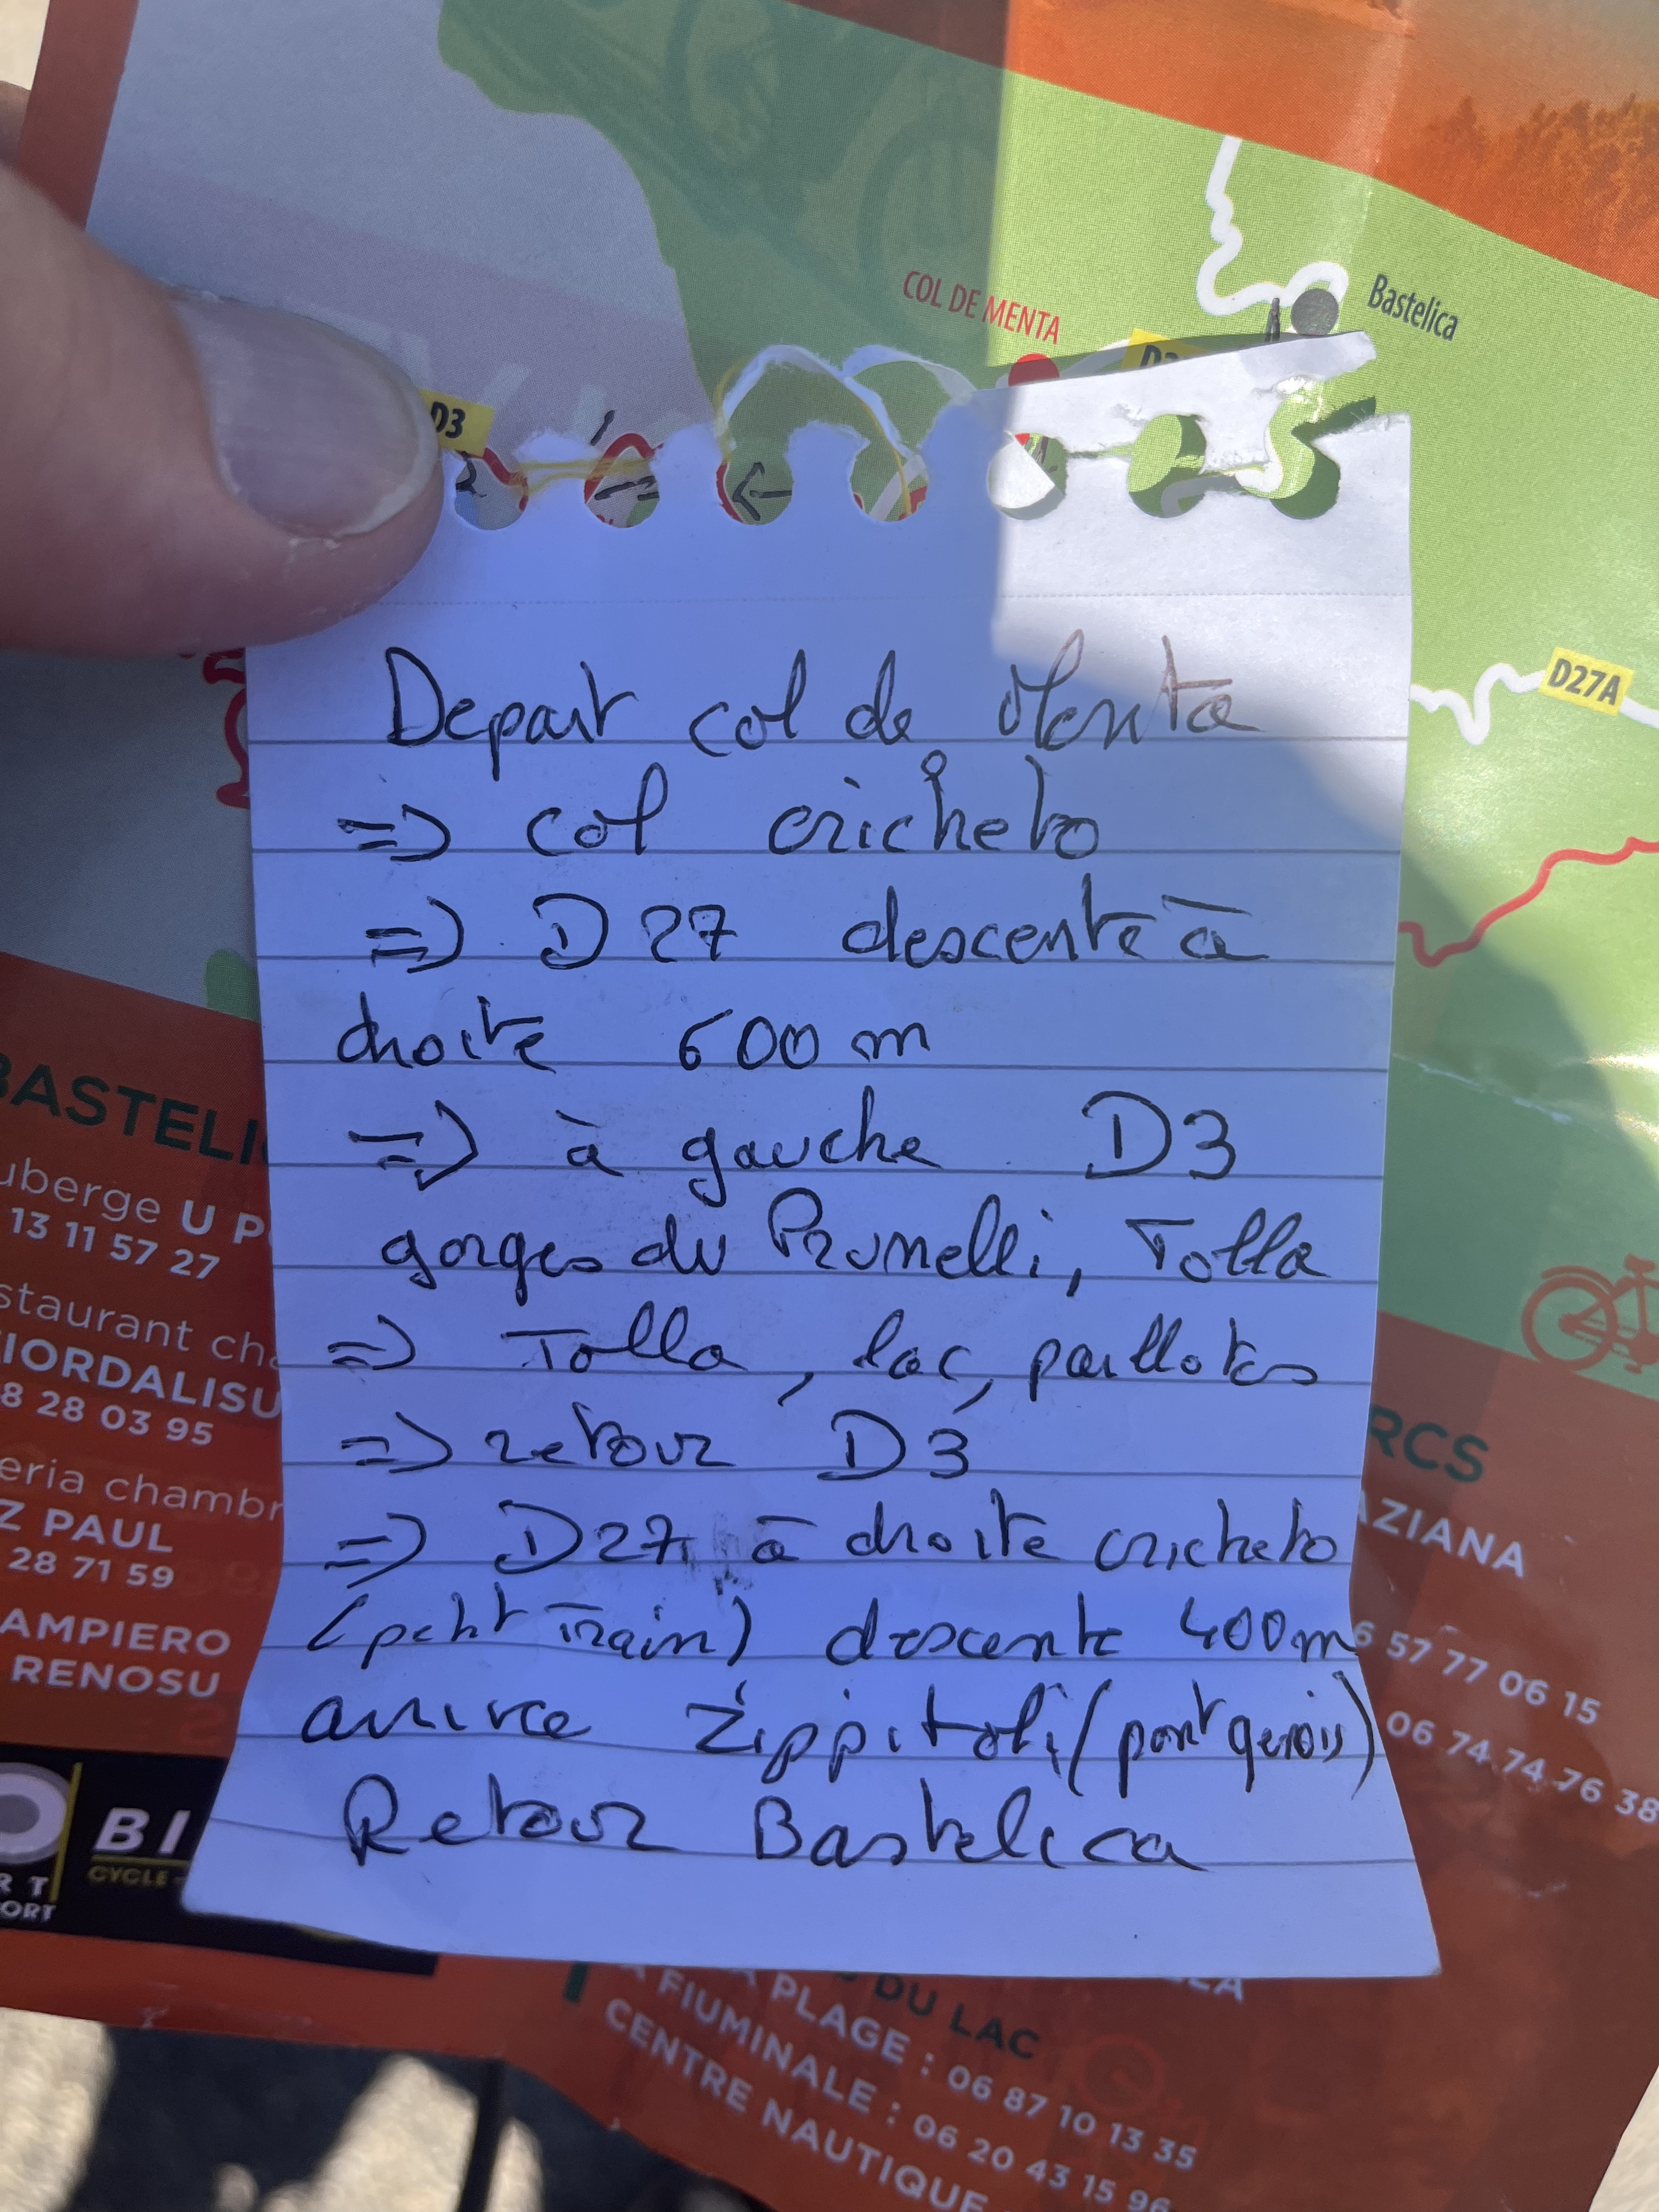 COL DE MENTA
Bastelica
D3
D27A
Depart col de Menta
=> col cricheto
=> D27 descente à
droite 600 m
=> à gauche D3
gorges du Prunelli, Tolla
=> Tolla, lac, paillotes
=> retour D3
=> D27 à droite cricheto
(petit train) descente 400m
arrivee Zippitoli (pont genois)
Retour Bastelica
BASTELI
uberge U P
13 11 57 27
staurant cha
IORDALISU
8 28 03 95
eria chambr
Z PAUL
28 71 59
AMPIERO
RENOSU
BI
CYCLE
RT
ORT
RCS
AZIANA
6 57 77 06 15
06 74 74 76 38
DU LAC
PLAGE : 06 87 10 13 35
FIUMINALE : 06 20 43 15 96
CENTRE NAUTIQUE